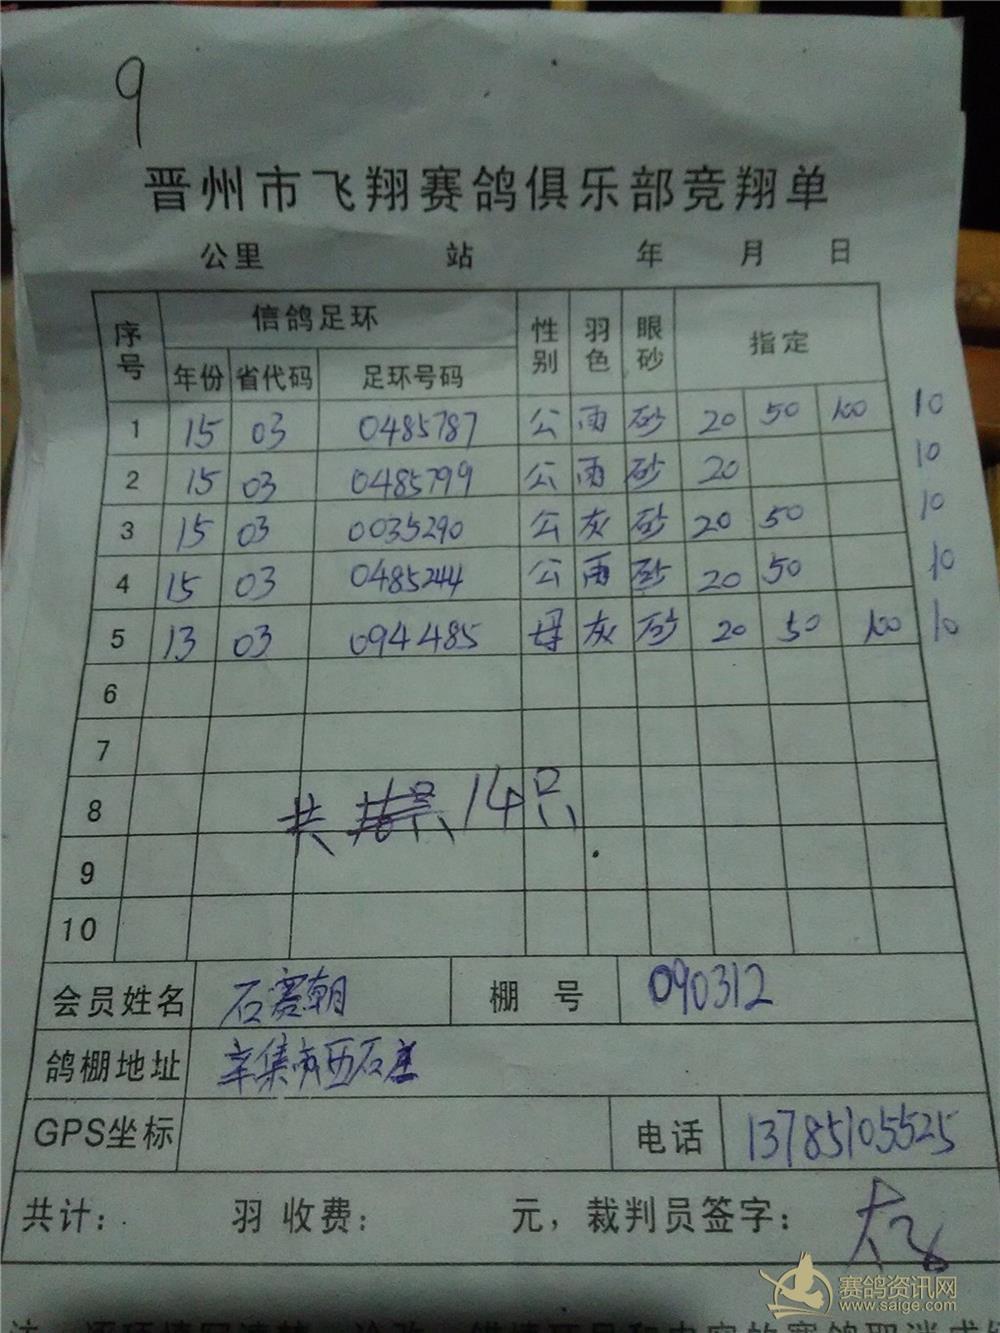 9
晋州市飞翔赛鸽俱乐部竞翔单
公里 站 年 月 日
序号 信鸽足环 性别 羽色 眼砂 指定
年份 省代码 足环号码
1 15 03 0485787 公 雨 砂 20 50 100 10
2 15 03 0485799 公 雨 砂 20 10
3 15 03 0035290 公 灰 砂 20 50 10
4 15 03 0485244 公 雨 砂 20 50 10
5 13 03 094485 母 灰 砂 20 50 100 10
6
7
8
共 14只
9
10
会员姓名 石赛朝 棚号 090312
鸽棚地址 辛集市西石庄
GPS坐标 电话 13785105525
共计: 羽 收费: 元, 裁判员签字: 大飞
赛鸽资讯网
www.saige.com